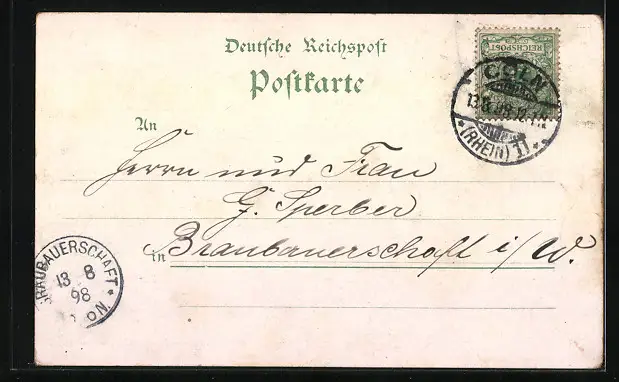 Deutsche Reichspost
Postkarte
REICHSPOST
CÖLN
13.8.98.12-1N.
* (RHEIN) 1) *
An
Herrn und Frau
G. Sperber
in Braubauerschaft i/W.
BRAUBAUERSCHAFT *
13 8
98